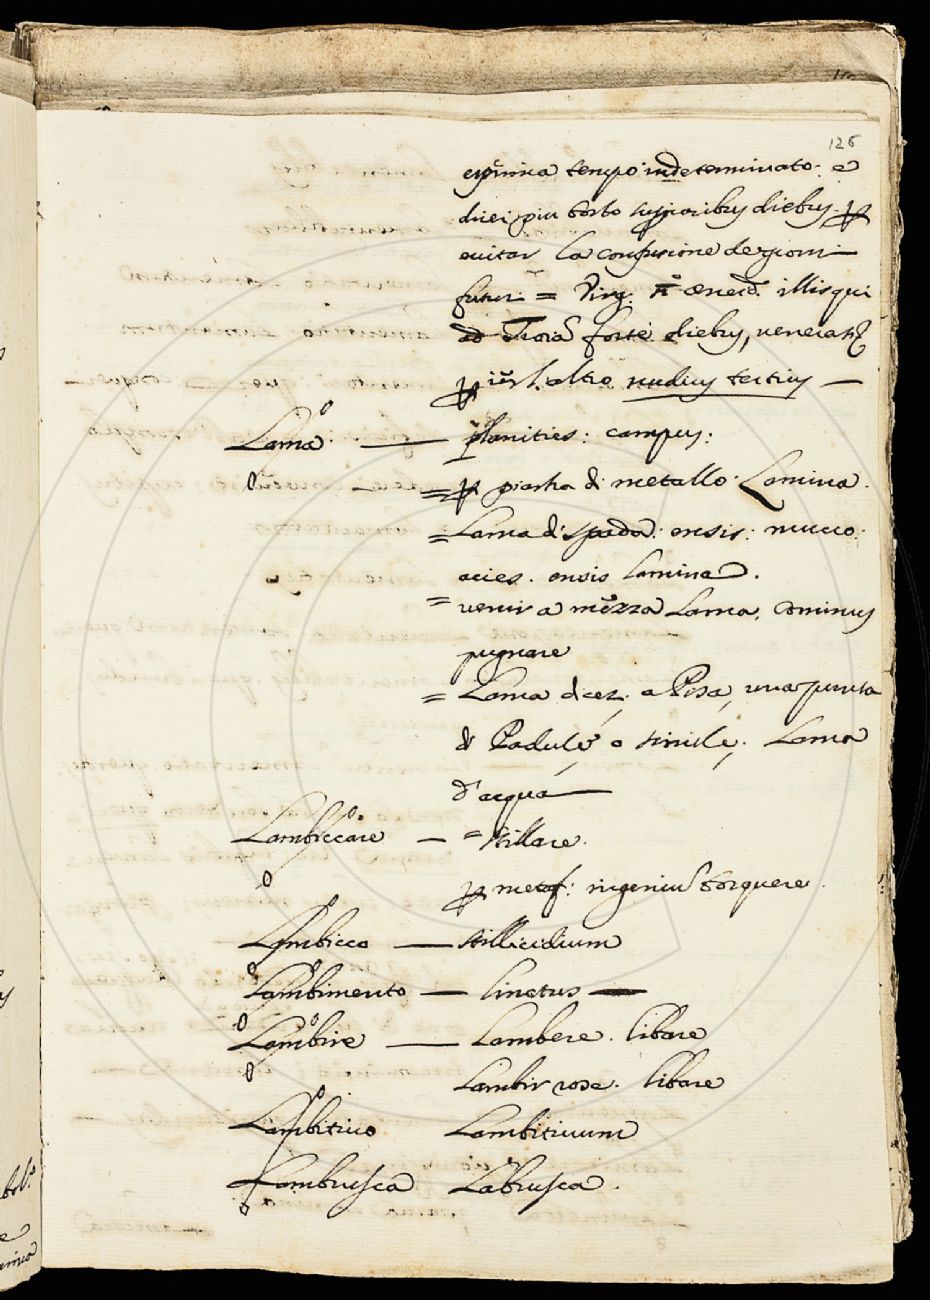 126
esprima tempo indeterminato. e
direi piu tosto superioribus diebus. p
evitar la confusione de giorni
futuri = Virg: Æneid. illis qui
ad Troia forte diebus, venerat
p ier l'altro nudius tertius —
Lama — planities: campus:
= p piastra di metallo. Lamina.
= Lama di spada. ensis: mucro.
acies. ensis lamina.
= venir a mezza Lama, cominus
pugnare
= Lama dicesi a Pisa, una punta
di Padule, o simile. Lama
d'acqua —
Lambiccare — = stillare.
p metaf: ingeniu torquere.
Lambicco — stillicidium
Lambimento — linctus —
Lambire — Lambere. libare
Lambir rose. libare
Lambitivo Lambitivum
Lambrusca Labrusca.